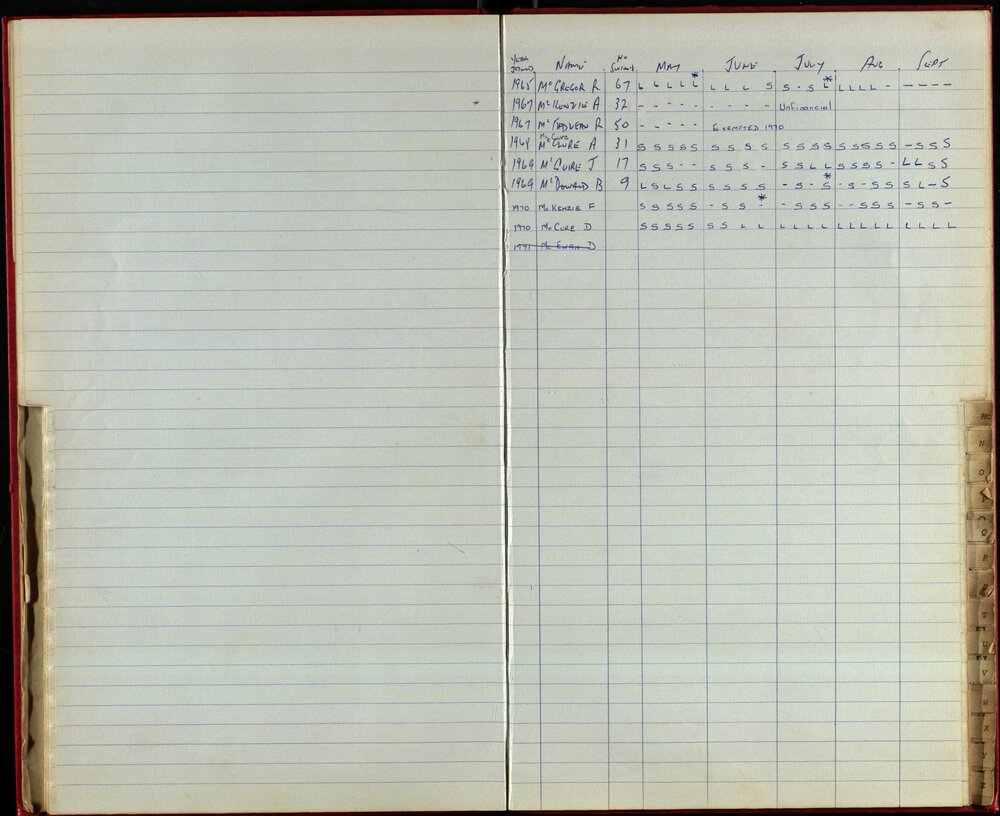 YEAR JOINED NAME NO SWIMS MAY JUNE JULY AUG SEPT
1965 McGREGOR R 67 L L L L L* L L L S S - S L* L L L L - - - - -
1967 McKENZIE A 32 - - - - - - - - - Unfinancial
1967 R 50 - - - - - EXEMPTED 1970
McClure
1968 McCLURE A 31 S S S S S S S S S S S S S S S S S S - S S S
1969 McGUIRE J 17 S S S - - S S S - S S L L S S S S - L L S S
1969 McDONALD B 9 L S L S S S S S S - S - S* - S - S S S L - S
1970 McKENZIE F S S S S S - S S -* - S S S - - S S S - S S -
1970 McCURE D S S S S S S S L L L L L L L L L L L L L L L
1971 McEWAN D
Mc
N
O
P
Q
R
S
T
U
V
W
X
Y
Z